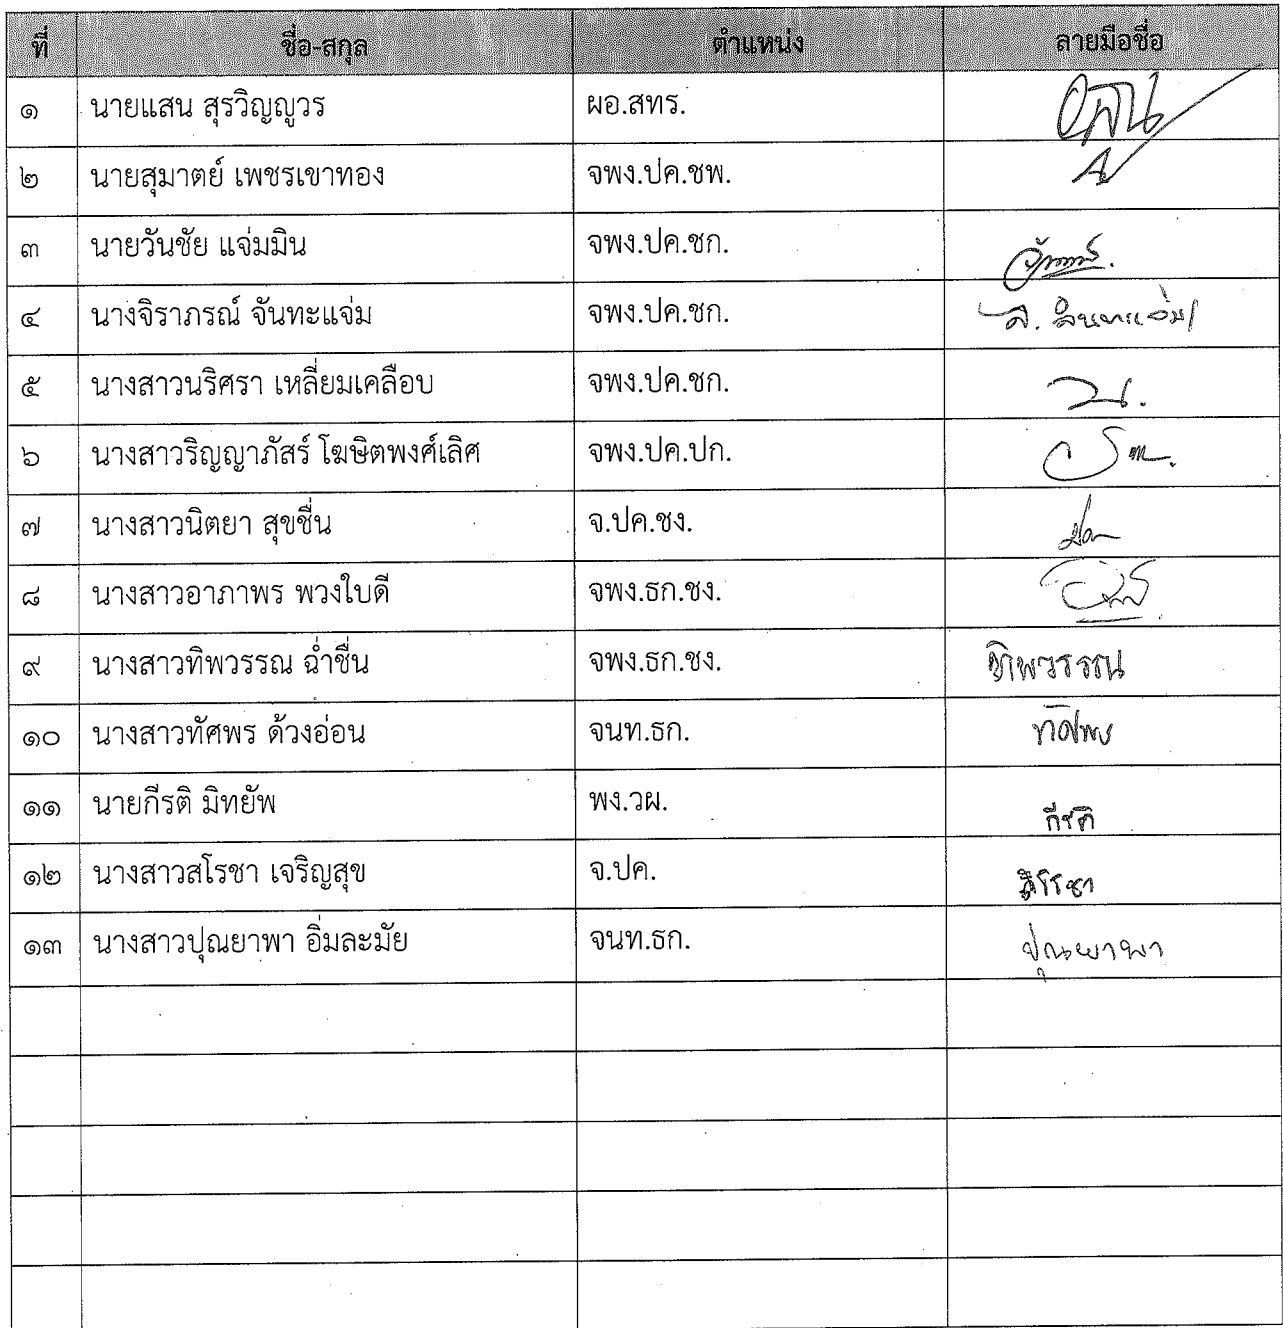 ที่ ชื่อ-สกุล ตำแหน่ง ลายมือชื่อ
๑ นายแสน สุรวิญญูวร ผอ.สทร.
๒ นายสุมาตย์ เพชรเขาทอง จพง.ปค.ชพ.
๓ นายวันชัย แจ่มมิน จพง.ปค.ชก.
๔ นางจิราภรณ์ จันทะแจ่ม จพง.ปค.ชก.
๕ นางสาวนริศรา เหลี่ยมเคลือบ จพง.ปค.ชก.
๖ นางสาวริญญาภัสร์ โฆษิตพงศ์เลิศ จพง.ปค.ปก.
๗ นางสาวนิตยา สุขชื่น จ.ปค.ชง.
๘ นางสาวอาภาพร พวงใบดี จพง.ธก.ชง.
๙ นางสาวทิพวรรณ ฉ่ำชื่น จพง.ธก.ชง. ทิพวรรณ
๑๐ นางสาวทัศพร ด้วงอ่อน จนท.ธก. ทัศพร
๑๑ นายกีรติ มิทยัพ พง.วผ. กีรติ
๑๒ นางสาวสโรชา เจริญสุข จ.ปค. สโรชา
๑๓ นางสาวปุณยาพา อิ่มละมัย จนท.ธก. ปุณยาพา